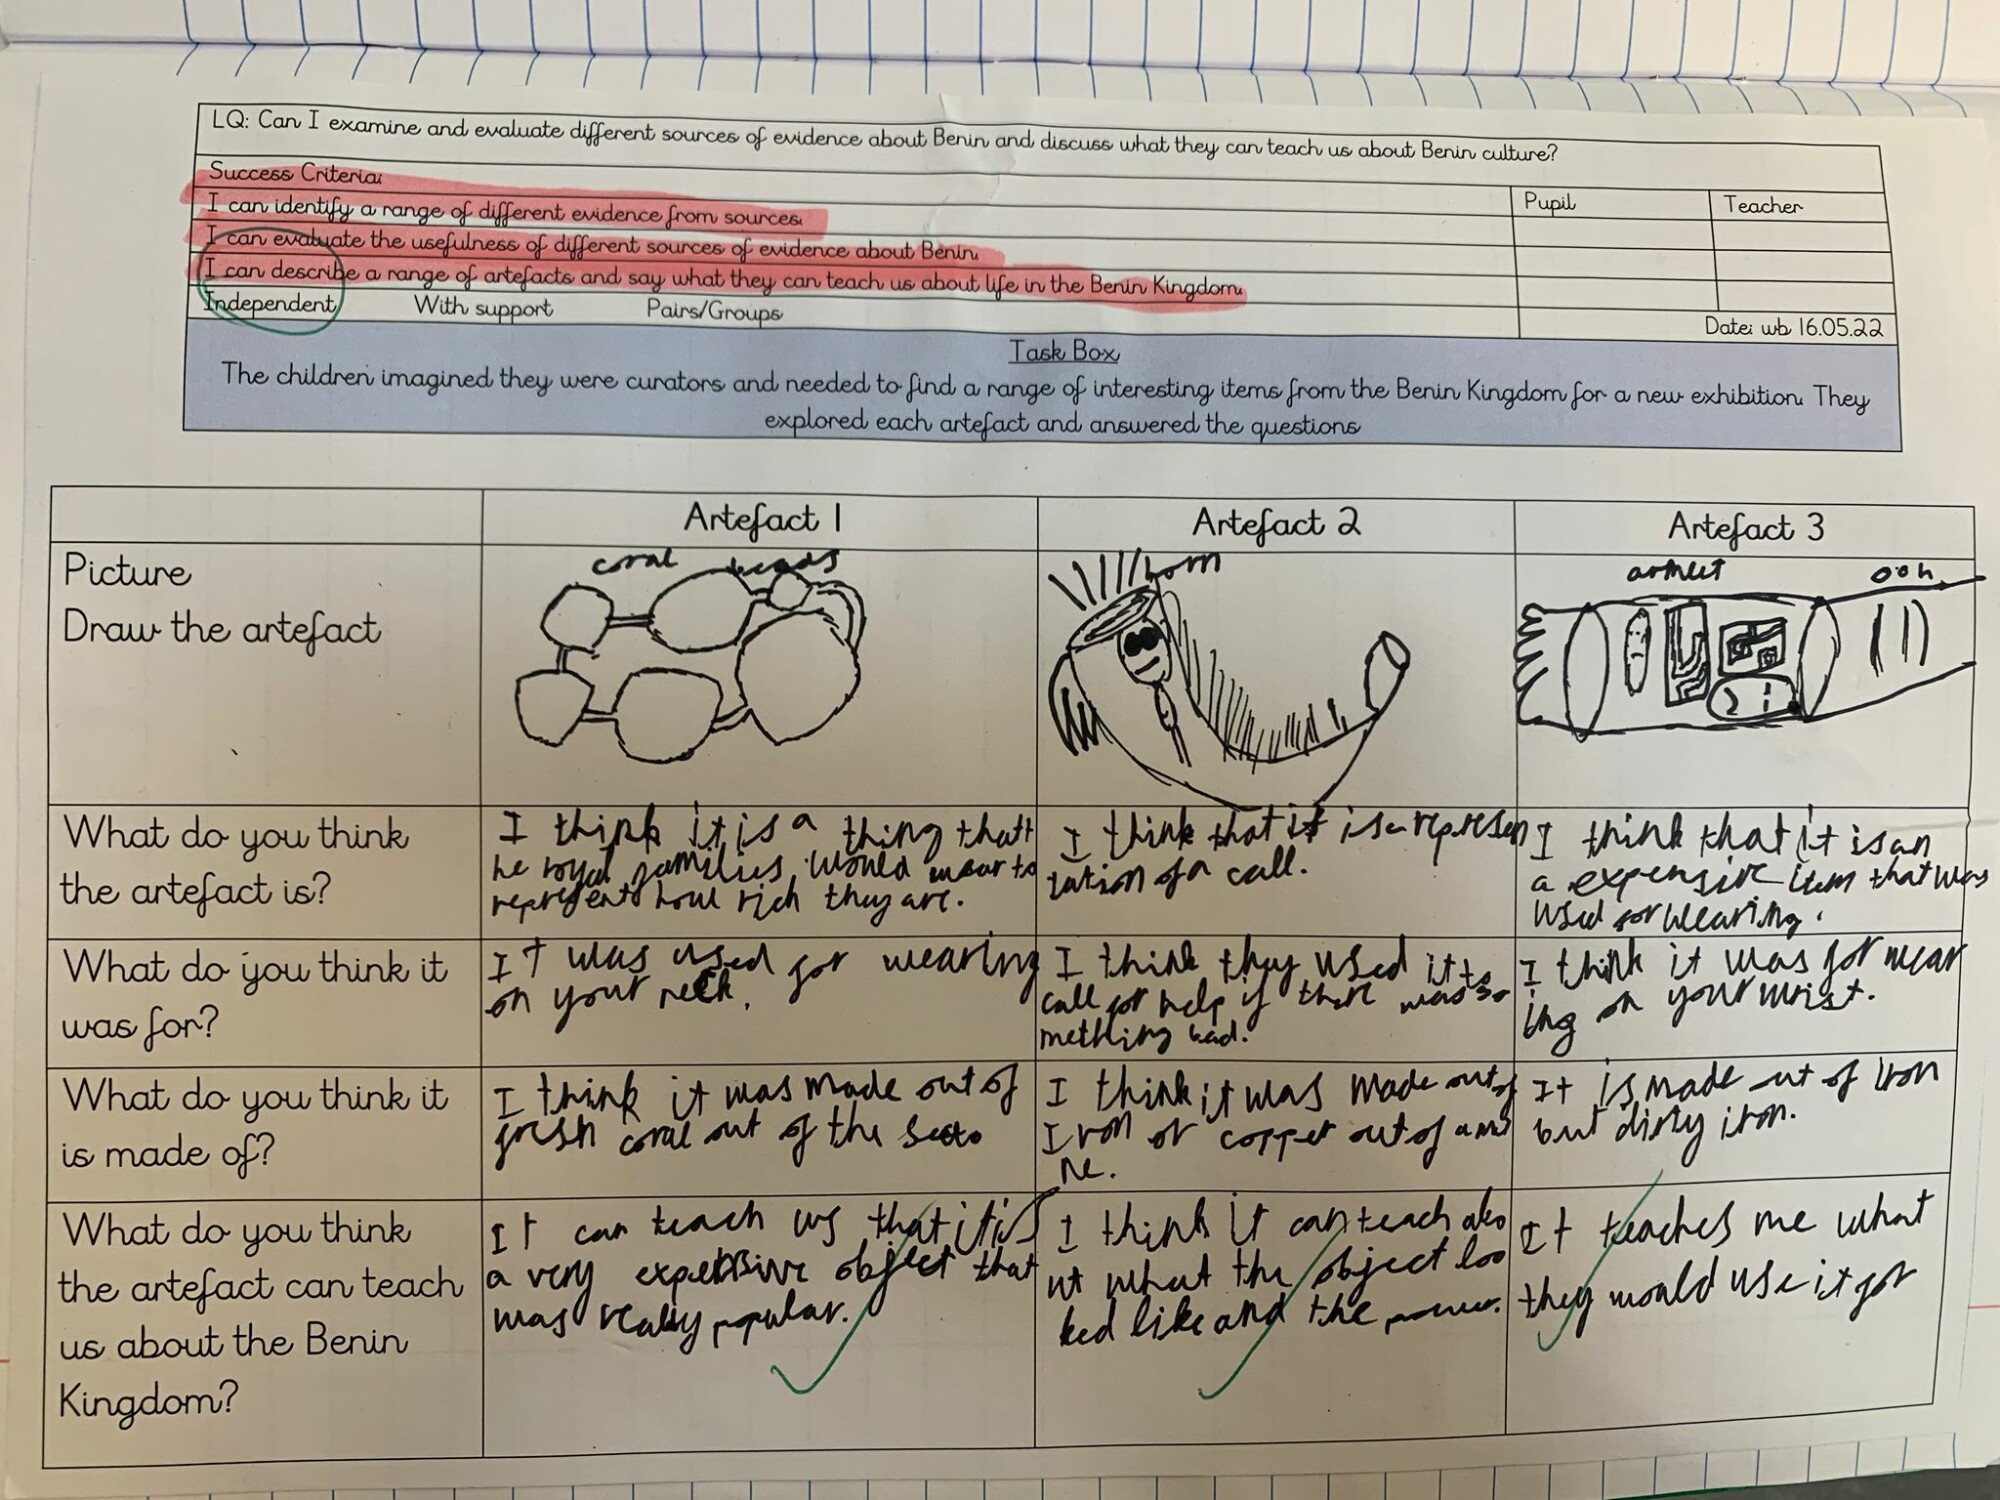 LQ: Can I examine and evaluate different sources of evidence about Benin and discuss what they can teach us about Benin culture?
Success Criteria:
Pupil
Teacher
I can identify a range of different evidence from sources.
I can evaluate the usefulness of different sources of evidence about Benin.
I can describe a range of artefacts and say what they can teach us about life in the Benin Kingdom.
Independent With support Pairs/Groups
Date: wb 16.05.22
Task Box
The children imagined they were curators and needed to find a range of interesting items from the Benin Kingdom for a new exhibition. They
explored each artefact and answered the questions
Artefact 1
Artefact 2
Artefact 3
Picture
Draw the artefact
coral beads
horn
armlet
ooh
What do you think
the artefact is?
I think it is a thing that t
he royal families would wear to
represent how rich they are.
I think that it is a represen
tation of a call.
I think that it is an
a expensive item that was
used for wearing.
What do you think it
was for?
It was used for wearing
on your neck.
I think they used it to
call for help if there was so
mething bad.
I think it was for wear
ing on your wrist.
What do you think it
is made of?
I think it was made out of
fresh coral out of the
I think it was made out of
Iron or copper out of a mi
ne.
It is made out of iron
but dirty iron.
What do you think
the artefact can teach
us about the Benin
Kingdom?
It can teach us that it is
a very expensive object that
was really popular.
I think it can teach abo
ut what the object loo
ked like and the power.
It teaches me what
they would use it for